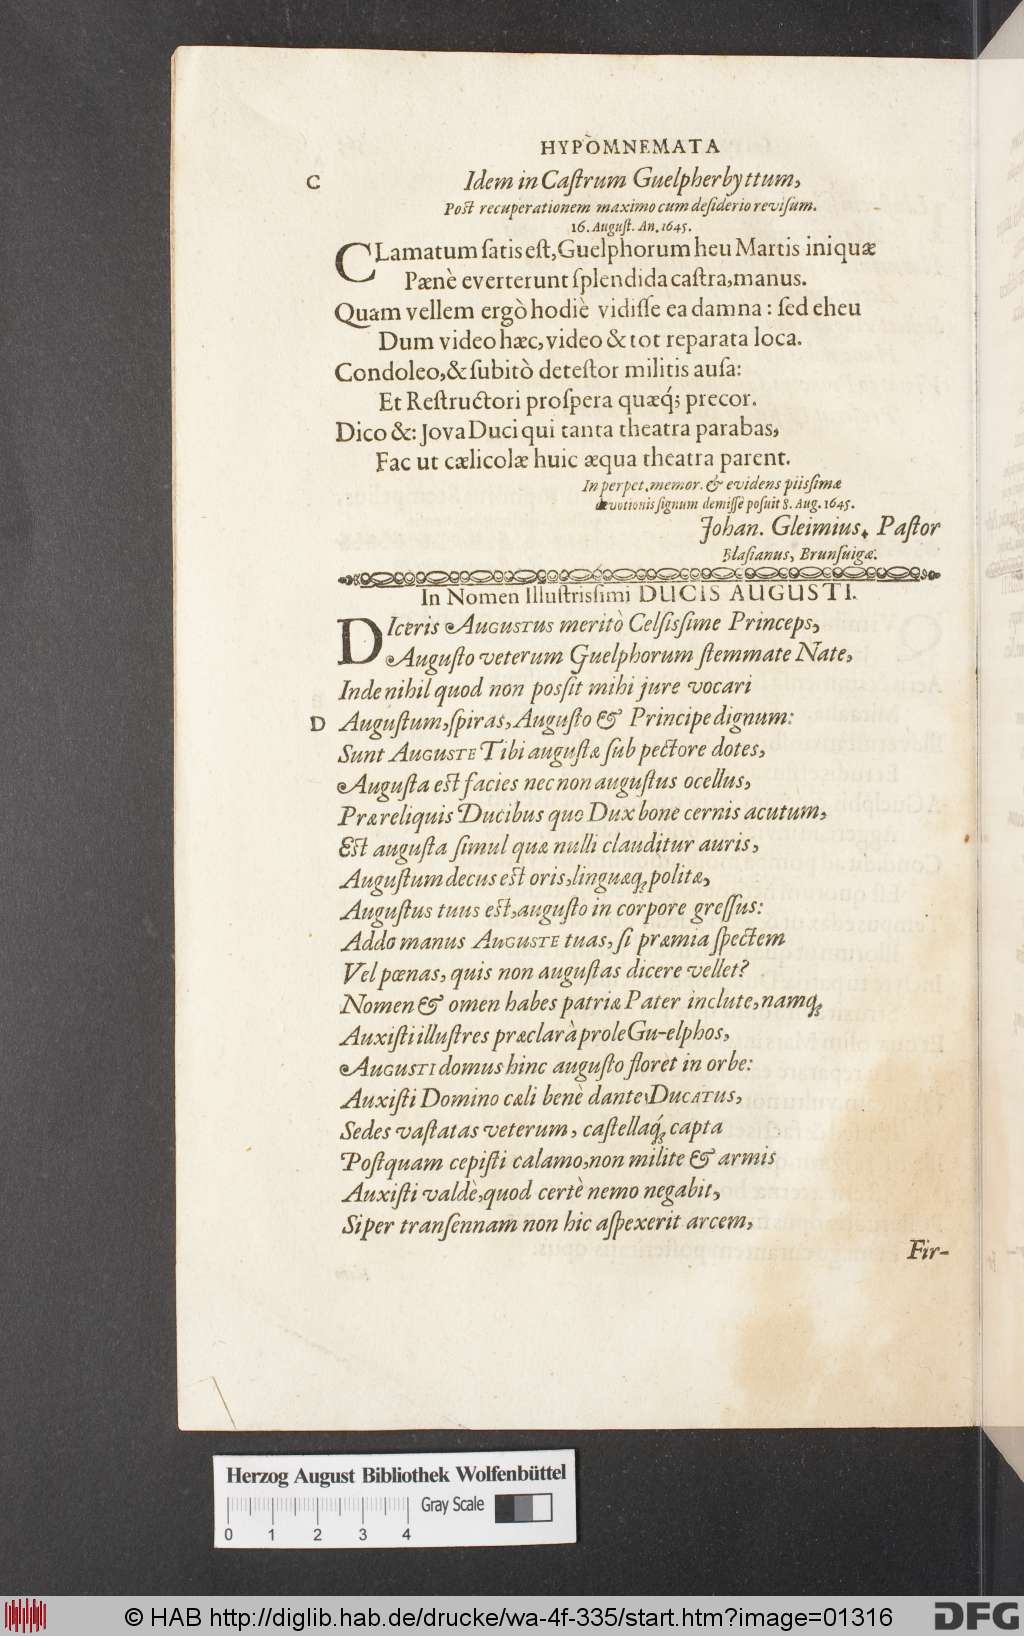 HYPÒMNEMATA
C Idem in Caſtrum Guelpherbyttum,
Poſt recuperationem maximo cum deſiderio reviſum.
16. Auguſt. An. 1645.
CLamatum ſatis eſt, Guelphorum heu Martis iniquæ
Pænè everterunt ſplendida caſtra, manus.
Quam vellem ergò hodiè vidiſſe ea damna: ſed eheu
Dum video hæc, video & tot reparata loca.
Condoleo, & ſubitò deteſtor militis auſa:
Et Reſtructori proſpera quæq́; precor.
Dico &: Jova Duci qui tanta theatra parabas,
Fac ut cælicolæ huic æqua theatra parent.
In perpet. memor. & evidens piiſsimæ
devotionis ſignum demiſſè poſuit 8. Aug. 1645.
Johan. Gleimius, Paſtor
Blaſianus, Brunſuigæ.
In Nomen Illuſtriſsimi DUCIS AUGUSTI.
DIceris AUGUSTUS meritò Celſiſsime Princeps,
Auguſto veterum Guelphorum ſtemmate Nate,
Inde nihil quod non poſſit mihi jure vocari
D Auguſtum, ſpiras, Auguſto & Principe dignum:
Sunt AUGUSTE Tibi auguſtæ ſub pectore dotes,
Auguſta eſt facies nec non auguſtus ocellus,
Præ reliquis Ducibus quo Dux bone cernis acutum,
Eſt auguſta ſimul quæ nulli clauditur auris,
Auguſtum decus eſt oris, linguæq; politæ,
Auguſtus tuus eſt, auguſto in corpore greſſus:
Addo manus AUGUSTE tuas, ſi præmia ſpectem
Vel pœnas, quis non auguſtas dicere vellet?
Nomen & omen habes patriæ Pater inclute, namq;
Auxiſti illuſtres præclarà prole Gu-elphos,
AUGUSTI domus hinc auguſto floret in orbe:
Auxiſti Domino cæli benè dante DUCATUS,
Sedes vaſtatas veterum, caſtellaq́; capta
Poſtquam cepiſti calamo, non milite & armis
Auxiſti valdè, quod certè nemo negabit,
Si per tranſennam non hic aſpexerit arcem,
Fir-
Herzog August Bibliothek Wolfenbüttel
Gray Scale
0 1 2 3 4
© HAB http://diglib.hab.de/drucke/wa-4f-335/start.htm?image=01316
DFG